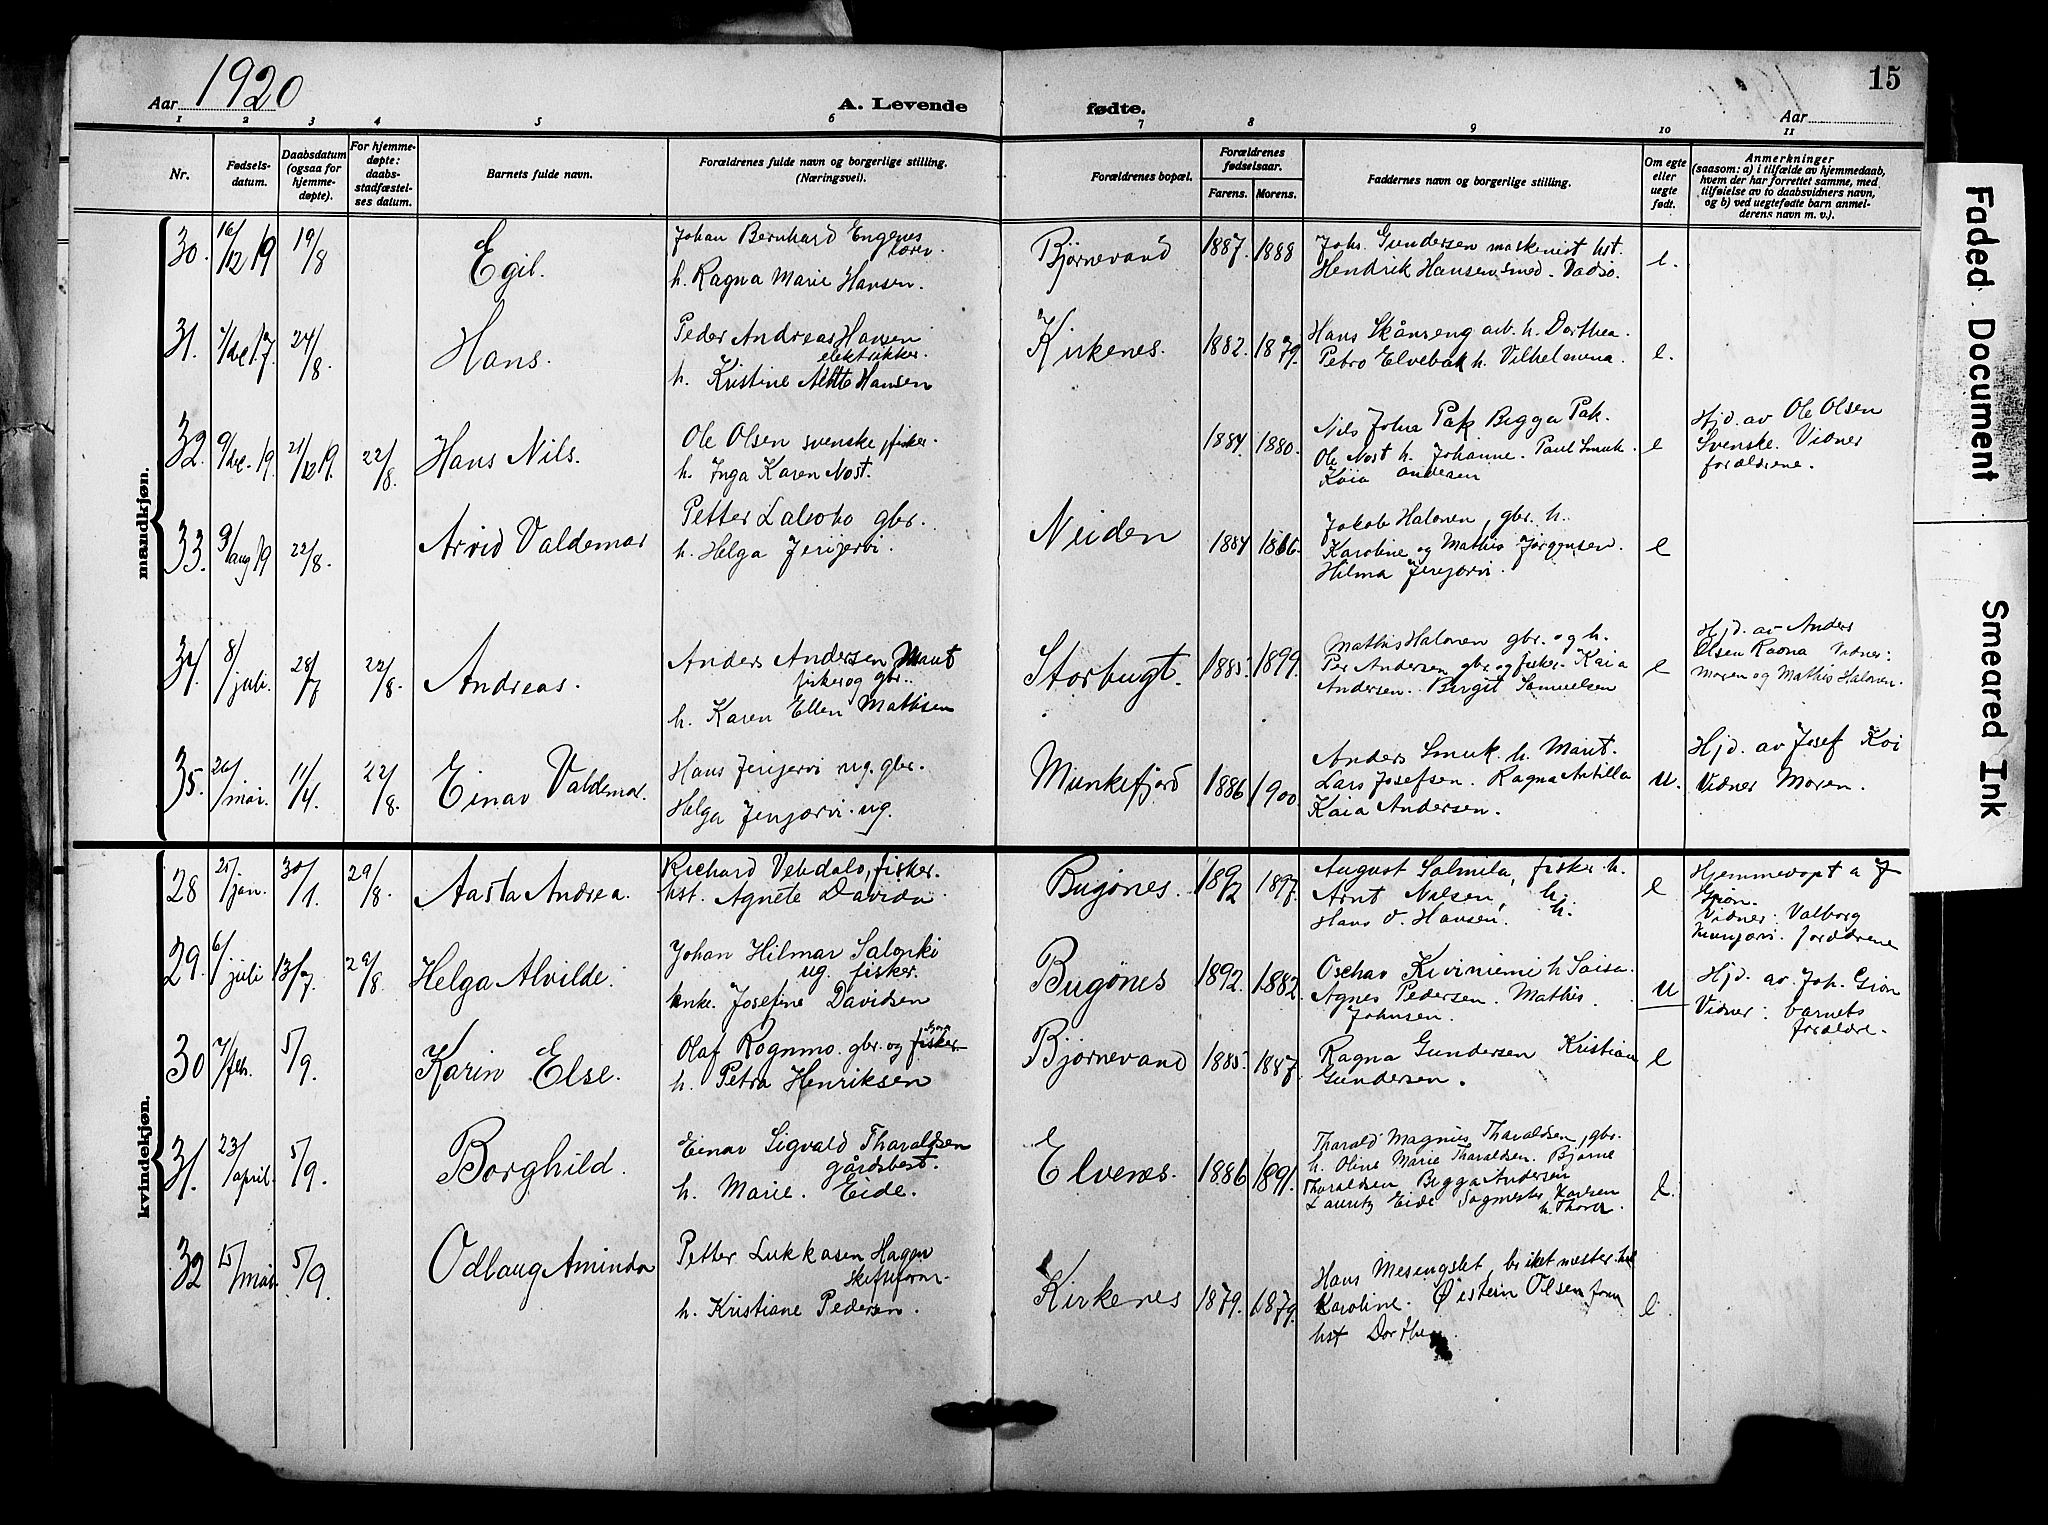 Aar 1920
A. Levende fødte.
15
Aar
1 2 3 4 5 6 7 8 9 10 11
Nr.
Fødsels-
datum.
Daabsdatum
(ogsaa for
hjemme-
døpte).
For hjemme-
døpte:
daabs-
stadfæstel-
ses datum.
Barnets fulde navn.
Forældrenes fulde navn og borgerlige stilling.
(Næringsvei).
Forældrenes bopæl.
Forældrenes
fødselsaar.
Farens. Morens.
Faddernes navn og borgerlige stilling.
Om egte
eller
uegte
født.
Anmerkninger
(saasom: a) i tilfælde av hjemmedaab,
hvem der har forrettet samme, med
tilføielse av to daabsvidners navn,
og b) ved uegtefødte barn anmel-
derens navn m. v.).
mandkjøn.
30. 16/12 19 19/8
Egil.
Johan Bernhard Engenes
h. Ragna Marie Hansen.
Bjørnevand
1887. 1888
Johs. Gundersen maskenist hst.
Hendrik Hansen, smed. Vadsø.
e.
31. 24/8
Hans.
Peder Andreas Hansen
elektrikker.
h. Kristine Hansen
Kirkenes.
1882. 1879.
Hans Skånseng arb. h. Dorthea.
Petro Elvebak h. Vilhelmina.
e.
32. 9/de. 19. 21/12 19. 22/8.
Hans Nils.
Ole Olsen svenske, fisker.
h. Inga Karen Nost.
1884. 1880.
Nils Joha Pak Bigga Pak.
Ole Nost h. Johanne. Paul Smuk.
Kaia Andersen
e
Hjd. av Ole Olsen
Svenske. Vidner
forældrene.
33. 9/aug 19 22/8.
Arvid Valdemar
Petter gbr.
h. Helga Jerijervi.
Neiden
1884
Jakob Halonen, gbr. h.
Karoline og Mathis Jørgensen.
Hilma Jerijærvi.
e
34. 8/juli. 28/7 22/8.
Andreas.
Anders Andersen
fisker og gbr.
h. Karen Ellen Mathisen
Storbugt.
1885. 1899.
Mathis Halonen gbr. og h.
Per Andersen gbr og fisker. Kaia
Andersen. Birgit Samuelsen
e
Hjd. av Anders
Olsen Ragna Vidner:
moren og Mathis Halonen.
35. 26/mar. 11/4. 22/8.
Einar Valdemar.
Hans Jerijervi ug. gbr.
Helga Jerijærvi. ug.
Munkefjord
1886 1900
Anders Smuk h. Marit.
Lars Josefsen. Ragna Antilla
Kaia Andersen.
u.
Hjd. av Josef
Vidner Moren.
kvindekjøn.
28 21/jan. 30/1. 29/8.
Aasta Andrea.
Richard fisker.
hst. Agnete Davida
Bugønes.
1892 1897.
August Salmila, fisker h.
Arnt Nilsen, h.
Hans O. Hansen. h.
e
Hjemmedøpt a J
Gjøn.
Vidner: Valborg
forældrene
29. 6/juli 13/7. 29/8
Helga Alvilde.
Johan Hilmar Saloriki
ug. fisker.
enke. Josefine Davidsen
Bugønes
1892. 1882.
Oschar Kiviniemi h Saisa.
Agnes Pedersen. Mathis.
Johnsen.
u
Hjd. av. Joh. Gjøn
Vidner: barnets
forældre.
30 7/feb. 5/9.
Karin Else.
Olaf Rognmo. gbr. og fisker
h. Petra Henriksen
Bjørnevand
1885. 1887.
Ragna Gundersen Kristian
Gundersen.
e
31. 23/april. 5/9.
Borghild.
Einar Sigvald Tharaldsen
gårdsbest.
h. Marie. Eide.
Elvenes.
1886 1891.
Tharald Magnus Tharaldsen, gbr.
h. Oline Marie Tharaldsen. Bjarne
Tharaldsen Bigga Andersen
Lauritz Eide Sagmester, Karlsen
h. Thora.
e.
32 15/mai. 5/9.
Odlaug Aminda
Petter Lukkasen Hagen
skifteform.
h. Kristiane Pedersen.
Kirkenes
1879. 1879.
Hans Mesengslet, briketmester. hst
Karoline. Øistein Olsen form
hst Dorthea.
e.
Faded Document
Smeared Ink